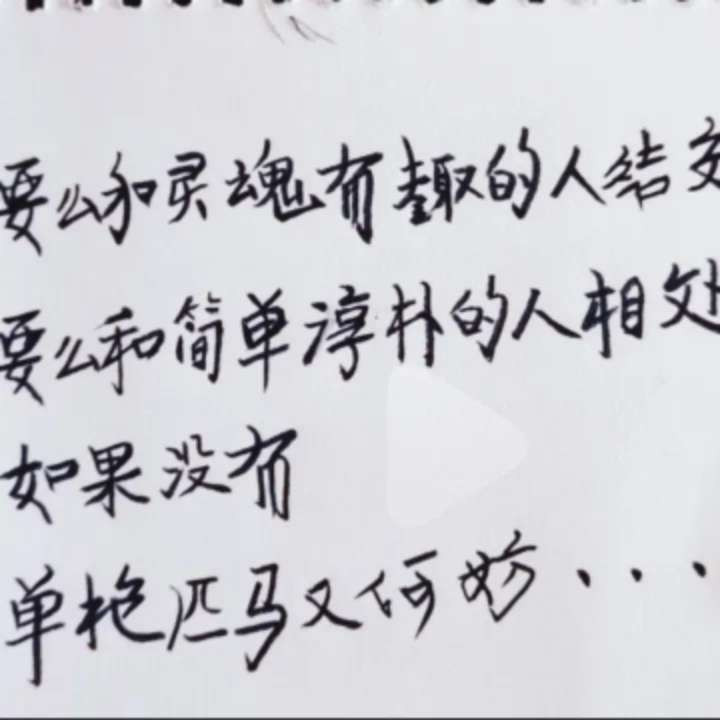 要么和灵魂有趣的人结交
要么和简单淳朴的人相处
如果没有
单枪匹马又何妨...